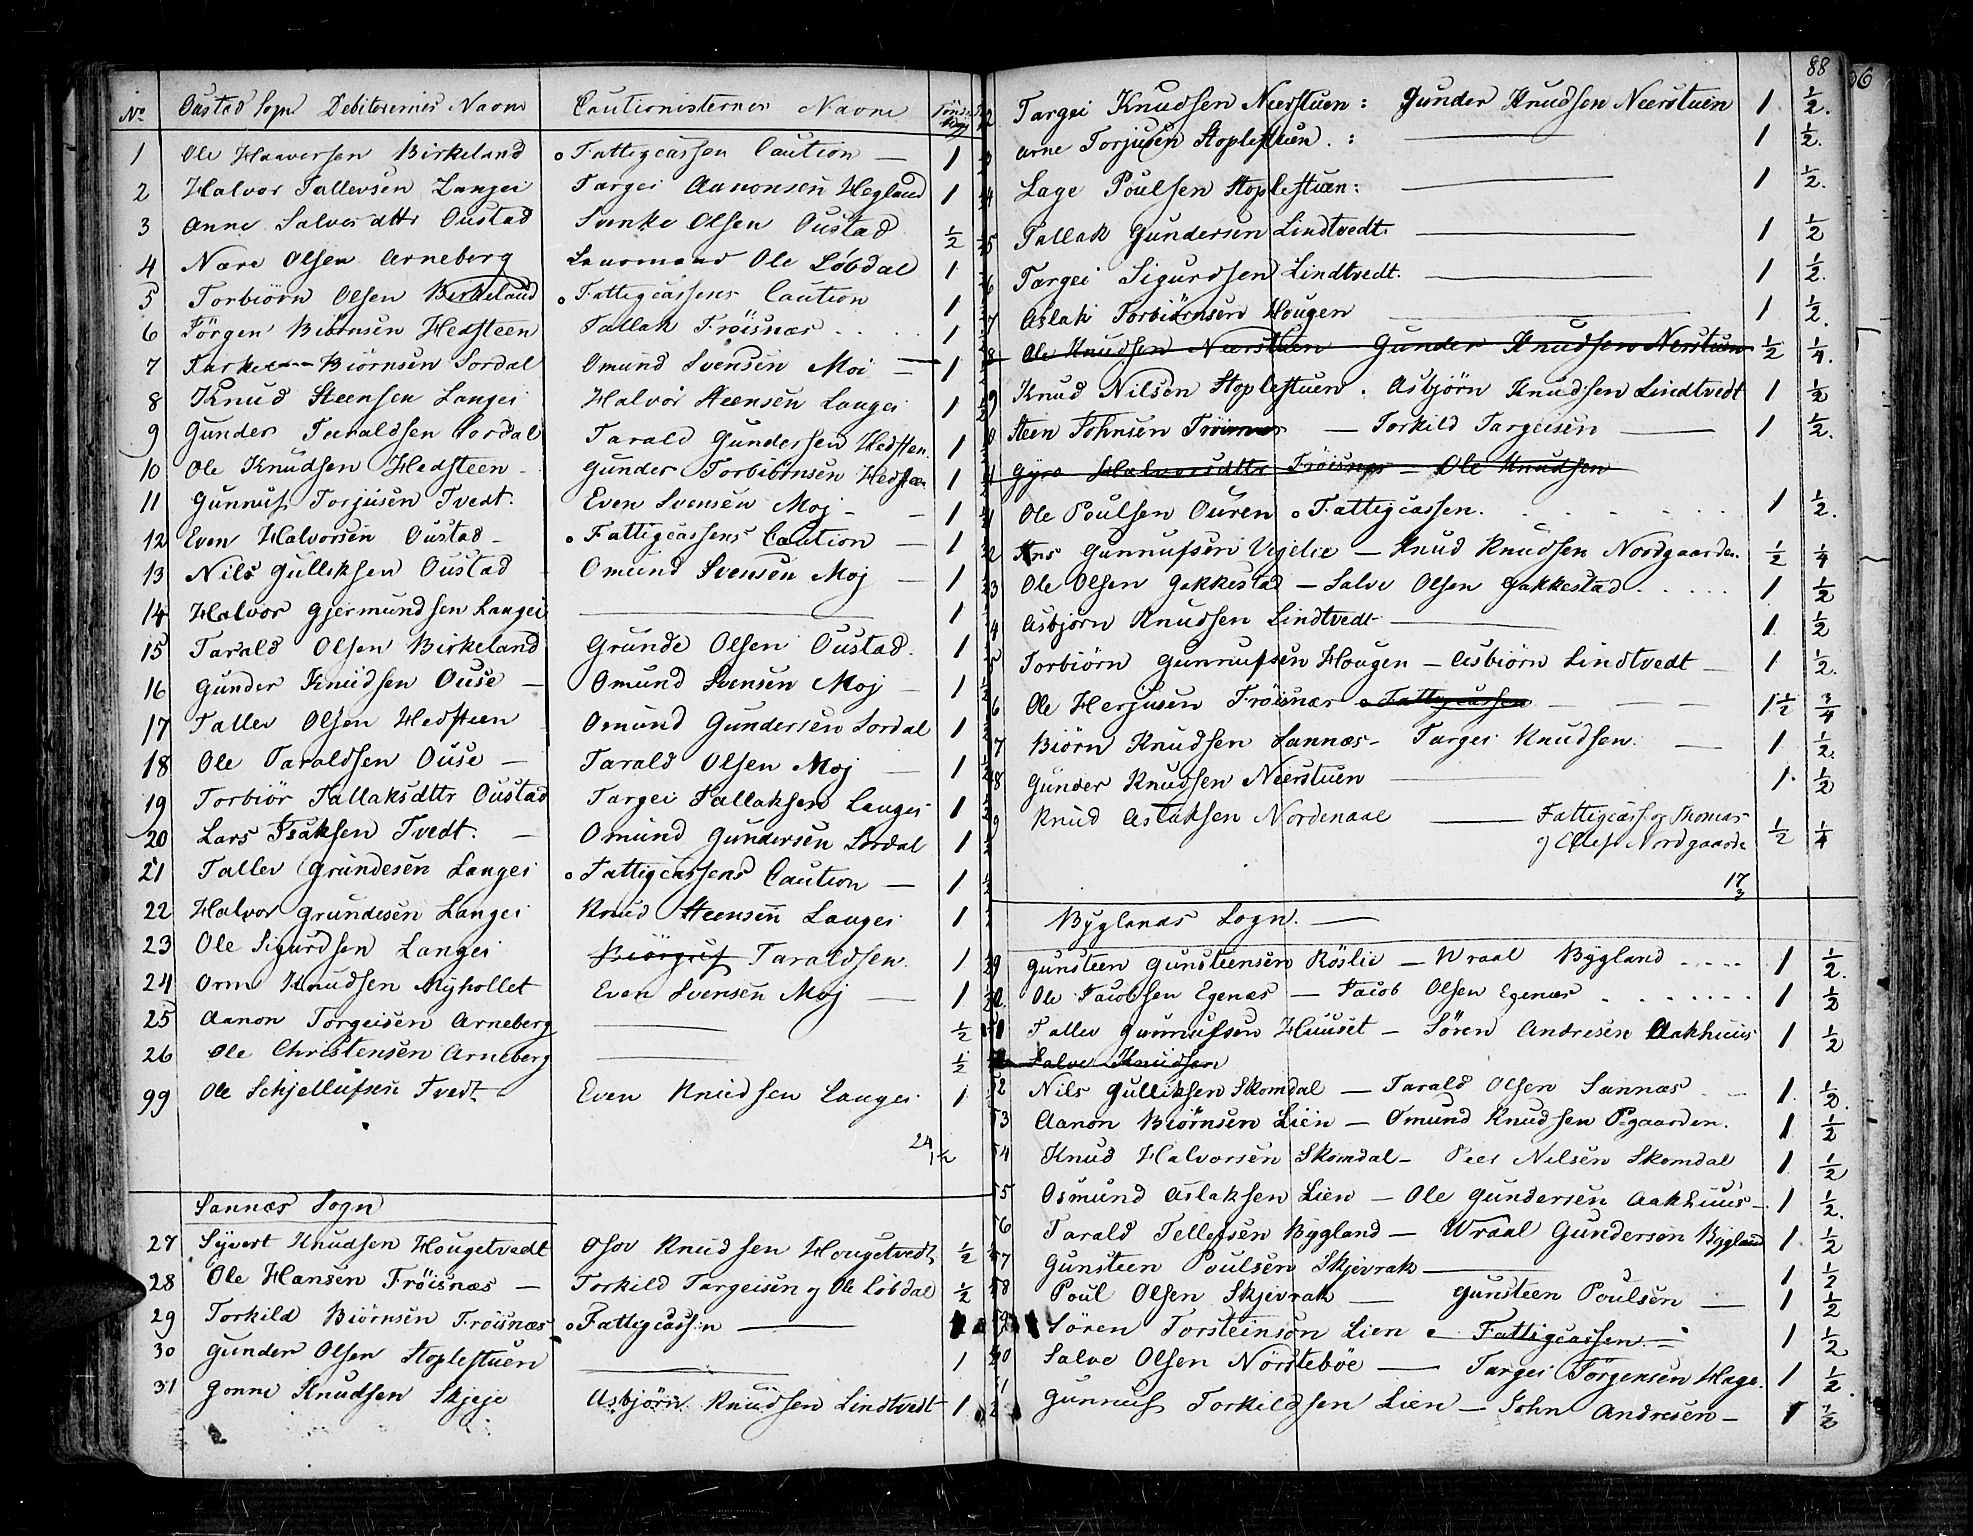 No Oustad Sogn Debitorernes Navne Cautionisternes Navne
1 Ole Haavorsen Birkeland Fattigcassen Caution — 1
2 Halvor Tallevsen Langei Targei Aanonsen Hegland 1
3 Anne Salvesdttr Oustad Sunke Olsen Oustad 1/2
4 Nære Olsen Arneberg Lensmand Ole Löbdal 1
5 Torbiörn Olsen Birkeland Fattigcassens Caution 1
6 Jörgen Biörnsen Hedsteen Tallak Fröisnæs 1
7 Biörnsen Sordal Omund Svensen Moi — 1
8 Knud Steensen Langei Halvor Steensen Langei 1
9 Gunder Taraldsen Sordal Tarald Gundersen Hedsteen 1
10 Ole Knudsen Hedsteen Gunder Torbiörnsen Hedsteen 1
11 Gunnuf Torjusen Tvedt. Even Svensen Moj — 1
12 Even Halvorsen Oustad — Fattigcassens Caution — 1
13 Nils Gulliksen Oustad Omund Svensen Moj — 1
14 Halvor Gjermundsen Langei —— 1
15 Tarald Olsen Birkeland Grunde Olsen Oustad. 1
16 Gunder Knudsen Ouse — Omund Svensen Moj — 1
17 Tallev Olsen Hedsteen Omund Gundersen Sordal 1
18 Ole Taraldsen Ouse — Tarald Olsen Moj — 1
19 Torbiör Tallaksdttr Oustad Targei Tallaksen Langei 1
20 Lars Isaksen Tvedt. — Omund Gundersen Sordal 1
21 Tallev Grundesen Langei Fattigcassens Caution — 1
22 Halvor Grundesen Langei Knud Steensen Langei 1
23 Ole Sigurdsen Langei Biörguf Taraldsen. 1
24 Orm Knudsen Myhollet Even Svensen Moj — 1
25 Aanon Torgeisen Arneberg —— 1/2
26 Ole Christensen Arneberg —— 1/2
99 Ole Schjellufsen Tvedt Even Knudsen Langei 1
24 1/2
Sannæs Sogn
27 Syvert Knudsen Hougetvedt Osov Knudsen Hougetvedt 1/2
28 Ole Hansen Fröisnæs — Torkild Targeisen og Ole Löbdal 1/2
29 Torkild Biörnsen Fröisnæs Fattigcassen ——
30 Gunder Olsen Stoplestuen —— 1
31 Gonne Knudsen Skjeje Asbjörn Knudsen Lindtvedt 1
88
Targei Knudsen Neerstuen: Gunder Knudsen Neerstuen 1 1/2.
Arne Torjusen Stoplestuen. : —— 1 1/2.
Lage Poulsen Stoplestuen: —— 1 1/2.
Tallak Gundersen Lindtvedt. —— 1 1/2
Targei Sigurdsen Lindtvedt. —— 1 1/2.
Aslak Torbiörnsen Hougen —— 1 1/2.
Ole Knudsen Neerstuen Gunder Knudsen Nerstuen 1/2 1/4.
Knud Nilsen Stoplestuen. Asbjörn Knudsen Lindtvedt 1 1/2
Steen Johnsen Fröisnæs — Torkild Targeisen —— 1 1/2.
Gyro Halvorsdttr Fröisnæs — Ole Knudsen
Ole Poulsen Ouren Fattigcassen. 1 1/2.
Gunnufsen Vegelie — Knud Knudsen Nordgaarden. 1/2 1/4
Ole Olsen Gakkestad — Salve Olsen Gakkestad 1 1/2
Asbjörn Knudsen Lindtvedt —— 1 1/2
Torbiörn Gunnufsen Hougen — Asbiörn Lindtvedt — 1 1/2.
Ole Herjusen Fröisnæs Fattigcassen 1 1/2 3/4
Biörn Knudsen Sannæs — Targei Knudsen. — 1 1/2.
Gunder Knudsen Neerstuen —— 1 1/2
Knud Aslaksen Nordenaae —— Fattigcass og Thomas
Nordgaarde 1/2 1/4
17
3
Byglands Sogn. —
Gunsteen Gunsteensen Röslie — Wraal Bygland 1 1/2.
Ole Jacobsen Egenæs — Jacob Olsen Egenæs 1 1/2
Tallev Gunnufsen Huuset — Sören Andresen Aakhuus 1 1/2
Salve Knudsen
Nils Gulliksen Skomdal — Tarald Olsen Sannæs 1 1/2.
Aanon Biörnsen Lien — Omund Knudsen P-gaarden. 1 1/2
Knud Halvorsen Skomdal — Peer Nilsen Skomdal 1 1/2
Osmund Aslaksen Lien — Ole Gundersen Aakhuus — 1 1/2.
Tarald Tellefsen Bygland — Wraal Gunderson Bygland 1 1/2
Gunsteen Poulsen Skjevrak —— 1 1/2
Poul Olsen Skjevrak — Gunsteen Poulsen — 1 1/2
Sören Torsteinson Lien — Fattigcassen. — 1 1/2
Salve Olsen Nörsteböe — Targei Jörgensen Hage. 1 1/2.
Gunnuf Torkildsen Lien — John Andresen — 1 1/2